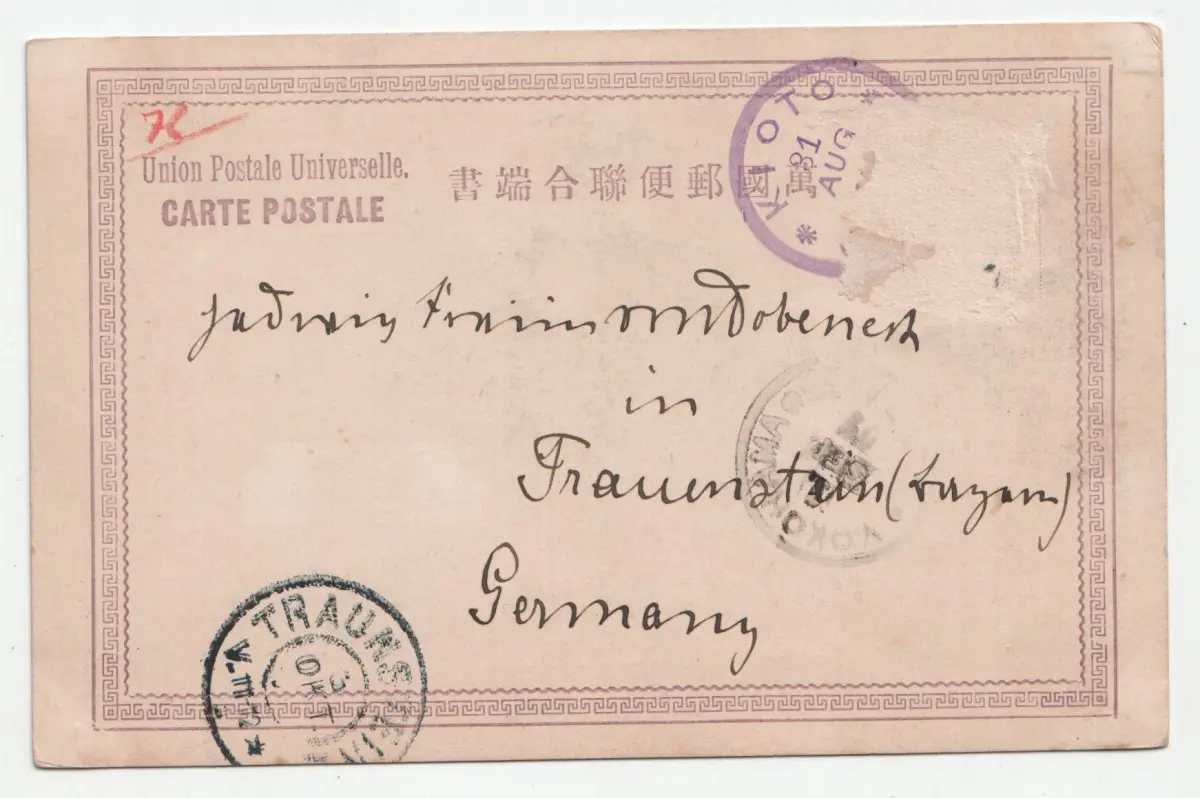 Union Postale Universelle.
CARTE POSTALE
書端合聯便郵國萬
KIOTO
31
AUG
Hedwig Freiin von Dobeneck
in
Traunstein (Bayern)
Germany
YOKOHAMA
TRAUNSTEIN
3
OKT